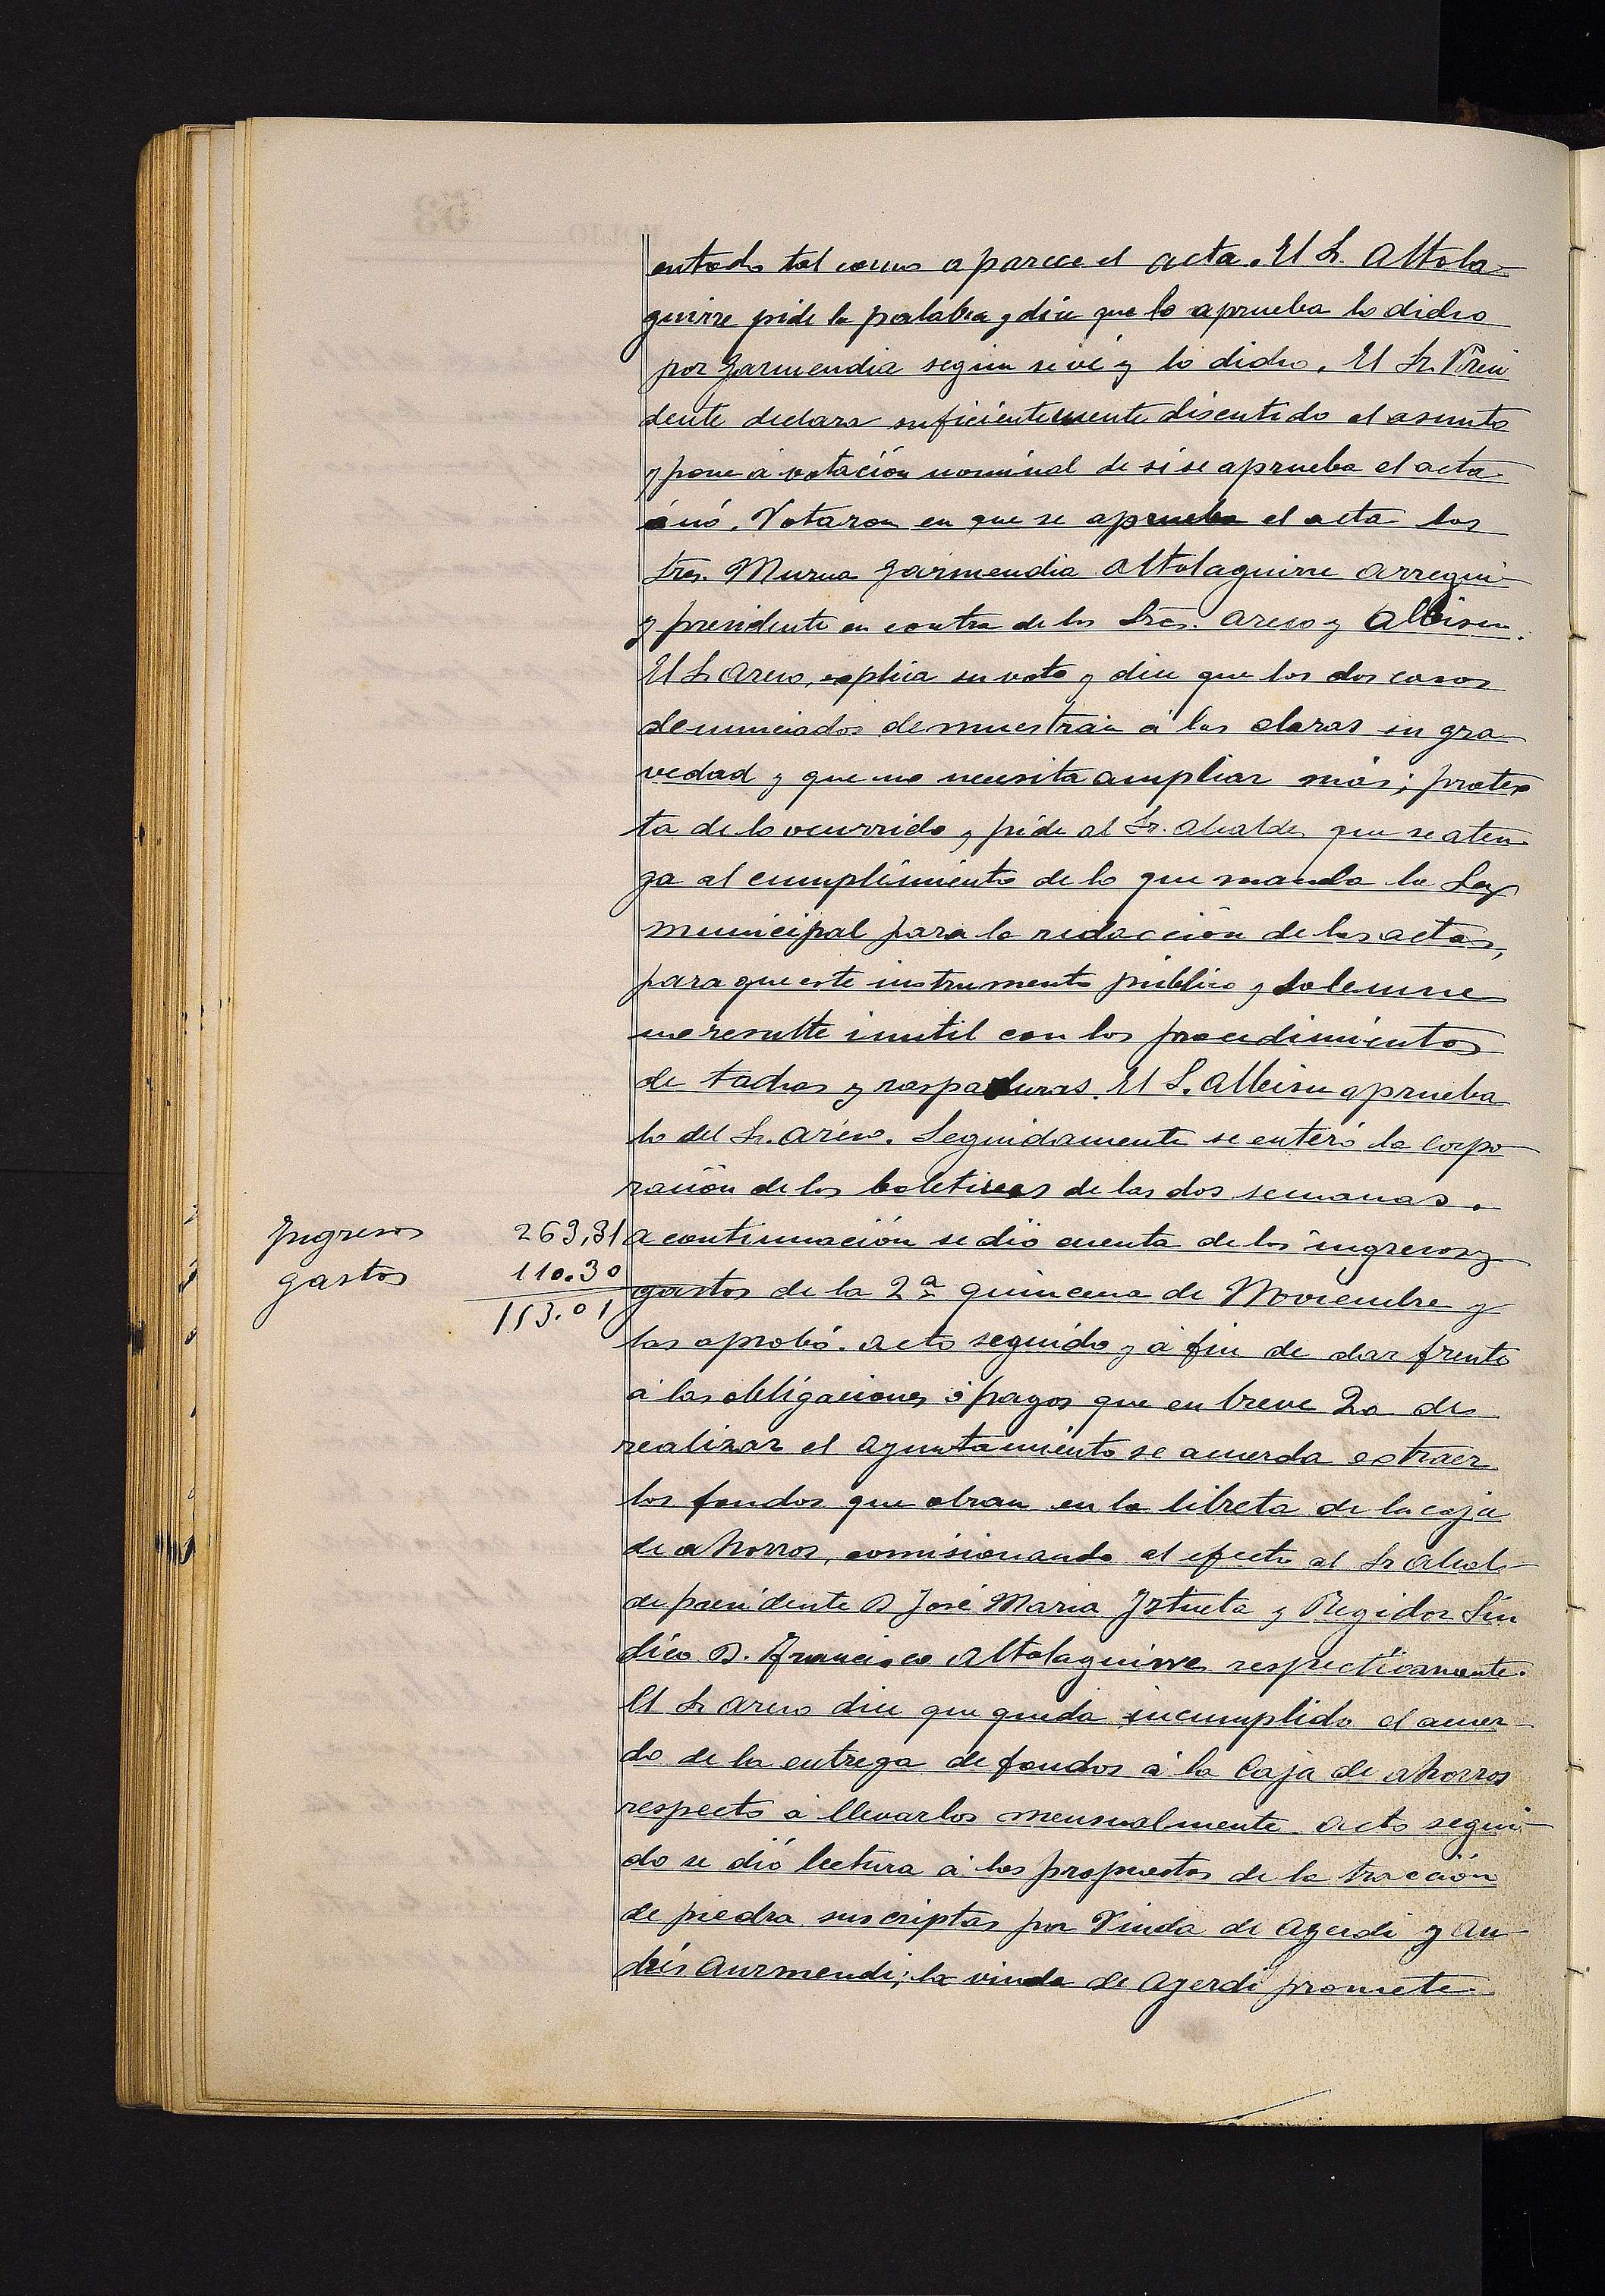 entado tal como aparece el acta. El Sr. Altola-
guirre pide la palabra y dice que lo aprueba lo dicho
por Garmendia segun se vé y lo dicho. El Sr. Presi
dente declara suficientemente discutido el asunto
y pone á votación nominal de si se aprueba el acta
ó nó. Votaron en que se aprueba el acta los
Sres. Murua Garmendia Altolaguirre Arregui
y presidente en contra de los Sres. Areso y Albisu.
El Sr Areso, esplica su voto y dice que los dos casos
denunciados demuestran á las claras su gra
vedad y que no necesita ampliar más; protes
ta de lo ocurrido y pide al Sr. Alcalde que se aten
ga al cumplimiento de lo que manda la Ley
municipal para la redacción de las actas,
para que este instrumento público y solemne
no resulte inutil con los procedimientos
de tachas y raspaduras. El S. Albisu aprueba
lo del Sr. Areso. Seguidamente se enteró la corpo
ración de los boletines de las dos semanas.
Ingresos 263,31 A continuación se dió cuenta de los ingresos y
gastos 110.30 gastos de la 2ª quincena de Noviembre y
153.01 los aprobó. Acto seguido y á fin de dar frente
á las obligaciones ó pagos que en breve ha de
realizar el Ayuntamiento se acuerda estraer
los fondos que obran en la libreta de la caja
de ahorros, comisionando al efecto al Sr Alcal-
de presidente D José Maria Iztueta y Regidor Sin
dico D. Francisco Altolaguirre respectivamente.
El Sr Areso dice que queda incumplido el acuer-
do de la entrega de fondos á la Caja de ahorros
respecto á llevarlos mensualmente. Acto segui-
do se dió lectura á las propuestas de la tracción
de piedra suscriptas por Viuda de Ayerdi y An-
drés Aurmendi; la viuda de Ayerdi promete